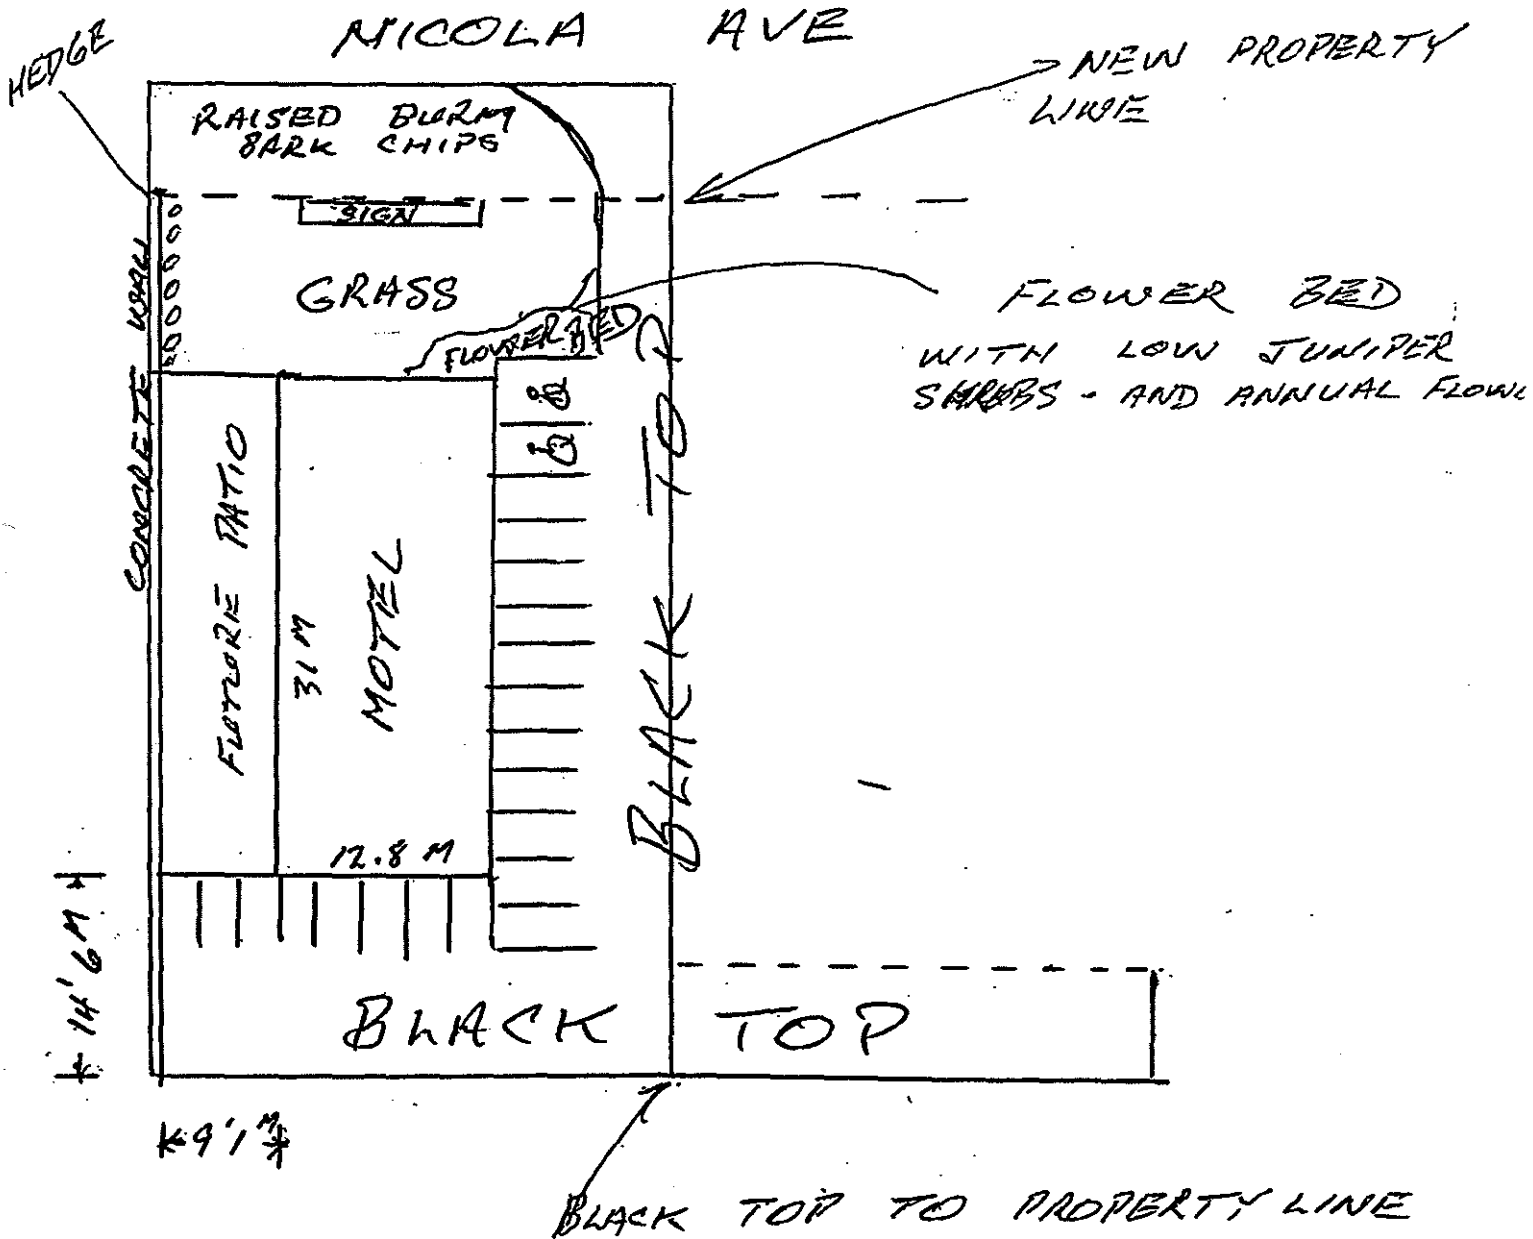 NICOLA AVE
HEDGE
NEW PROPERTY
LINE
RAISED BURM
BARK CHIPS
SIGN
GRASS
FLOWER BED
FLOWER BED
WITH LOW JUNIPER
SHRUBS - AND ANNUAL FLOW
CONCRETE WALL
PATIO
31 M
MOTEL
12.8 M
BLACK TOP
14'6 M
BLACK TOP
9'1 M
BLACK TOP TO PROPERTY LINE